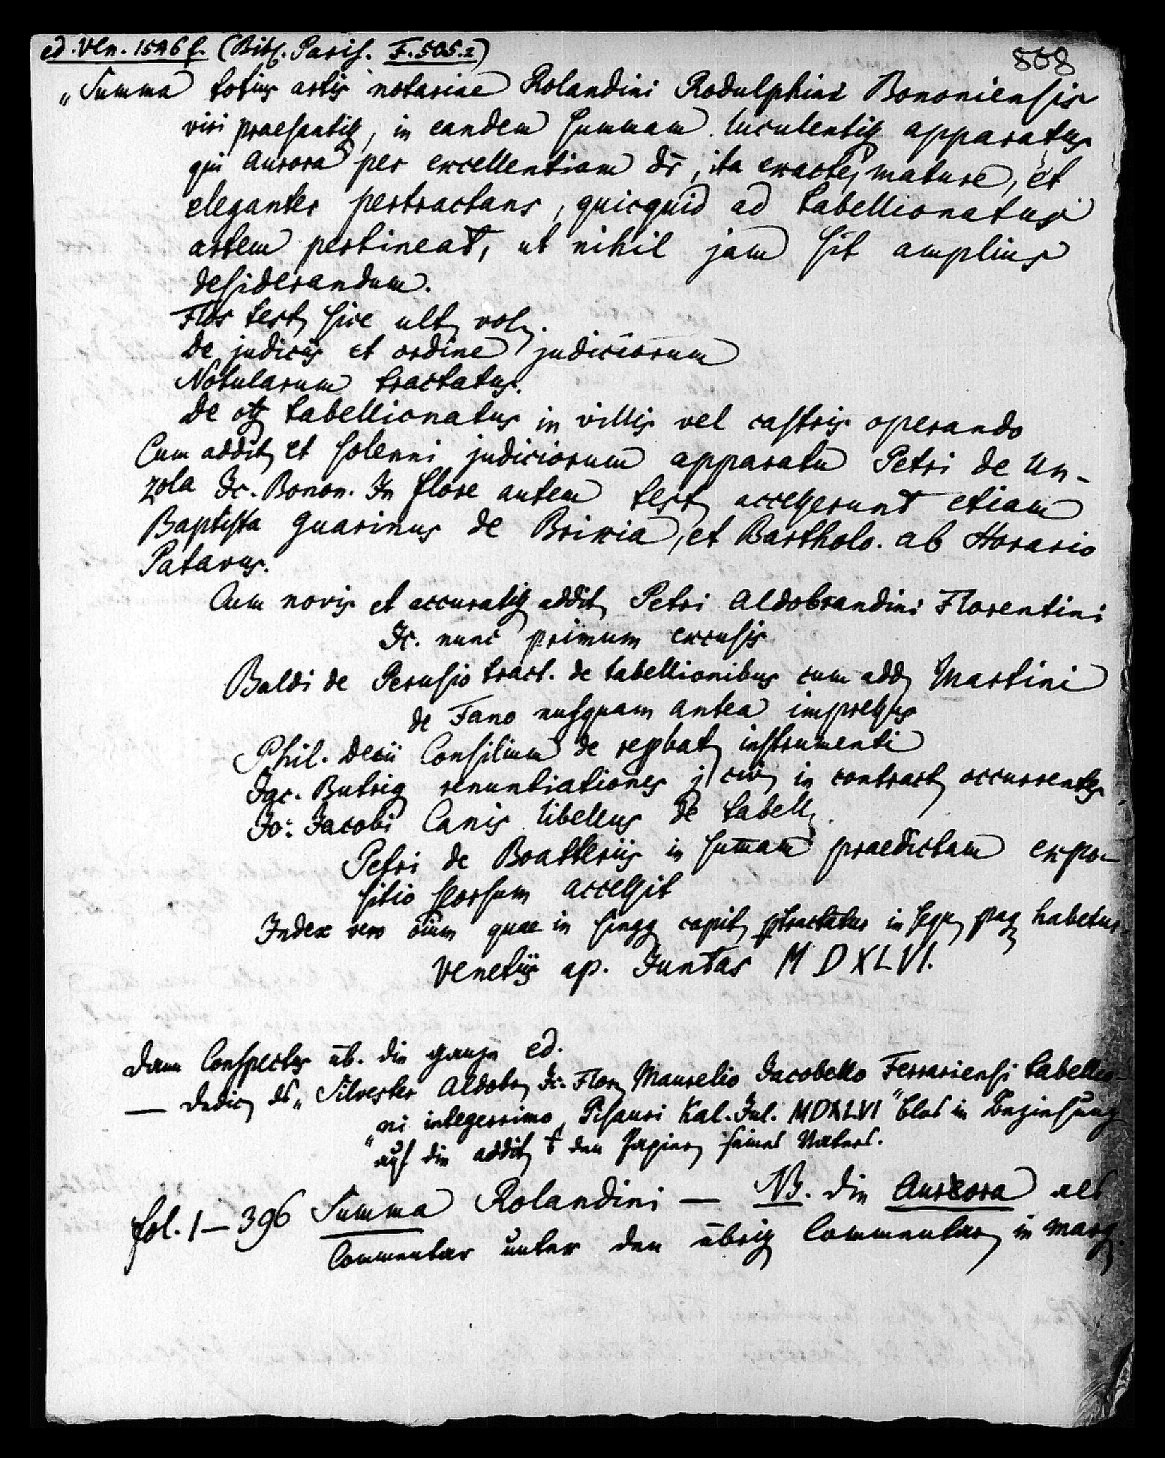 ed. Ven. 1546 f. (Bibl. Paris. F. 505.2)
868
„Summa totius artis notariae Rolandini Rodulphini Bononiensis
viri praestantiss, in eandem summam luculentiss apparatus
qui Aurora per excellentiam dr, ita exacte, mature, et
eleganter pertractans, quicquid ad tabellionatus
artem pertineat, ut nihil jam sit amplius
desiderandum.
Flos test sive ult vol.
De judiciis et ordine judiciorum
Notularum tractatus.
De off tabellionatus in villis vel castris operando
Cum addit et solenni judiciorum apparatu Petri de Un-
zola Jc. Bonon. In flore autem test accesserunt etiam
Baptista Guarinus de Brixia, et Bartholo. ab Horario
Patavus.
Cum novis et accuratiss addit Petri Aldobrandini Florentini
Jc. nunc primum excusis
Baldi de Perusio tract. de tabellionibus cum add Martini
de Fano nusquam antea impressus
Phil. Decii Consilium de reprobat instrumenti
Jac. Butrig renuntiationes j civ in contract occurrentes
Jo: Jacobi Canis libellus de tabell.
Petri de Boatteriis in summam praedictam expo-
sitio seorsum accessit
Index vero oium quae in singg capit ptractatur in seqe pag habetur
Venetiis ap. Juntas MDXLVI.
Dann Conspectus üb. die ganze ed.
— Dedic des „Silvester Aldobr Jc. Flor Maurelio Jacobello Ferrariensi tabellio-
ni integerrimo, Pisauri Kal. Jul. MDXLVI" blos in Beziehung
auf die addit in den Papier seines Vaters.
fol. 1—396 Summa Rolandini — NB. die Aurora als
Commentar unter den übrig Commentar in marg.